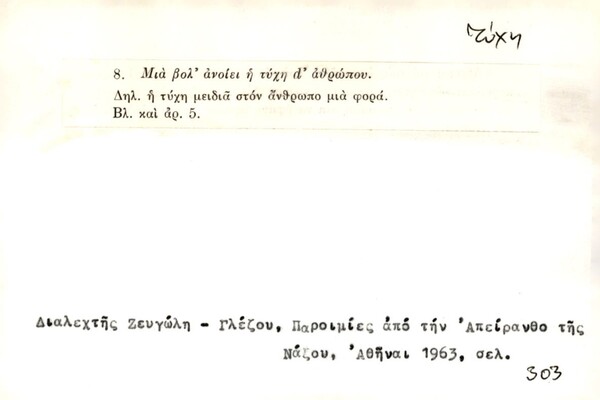 Τύχη
8. Μιὰ βολ' ἀνοίει ἡ τύχη d' ἀθρώπου.
Δηλ. ἡ τύχη μειδιᾶ στόν ἄνθρωπο μιὰ φορά.
Βλ. καὶ ἀρ. 5.
Διαλεχτῆς Ζευγώλη - Γλέζου, Παροιμίες ἀπό τήν Ἀπείρανθο τῆς
Νάξου, Ἀθῆναι 1963, σελ.
303